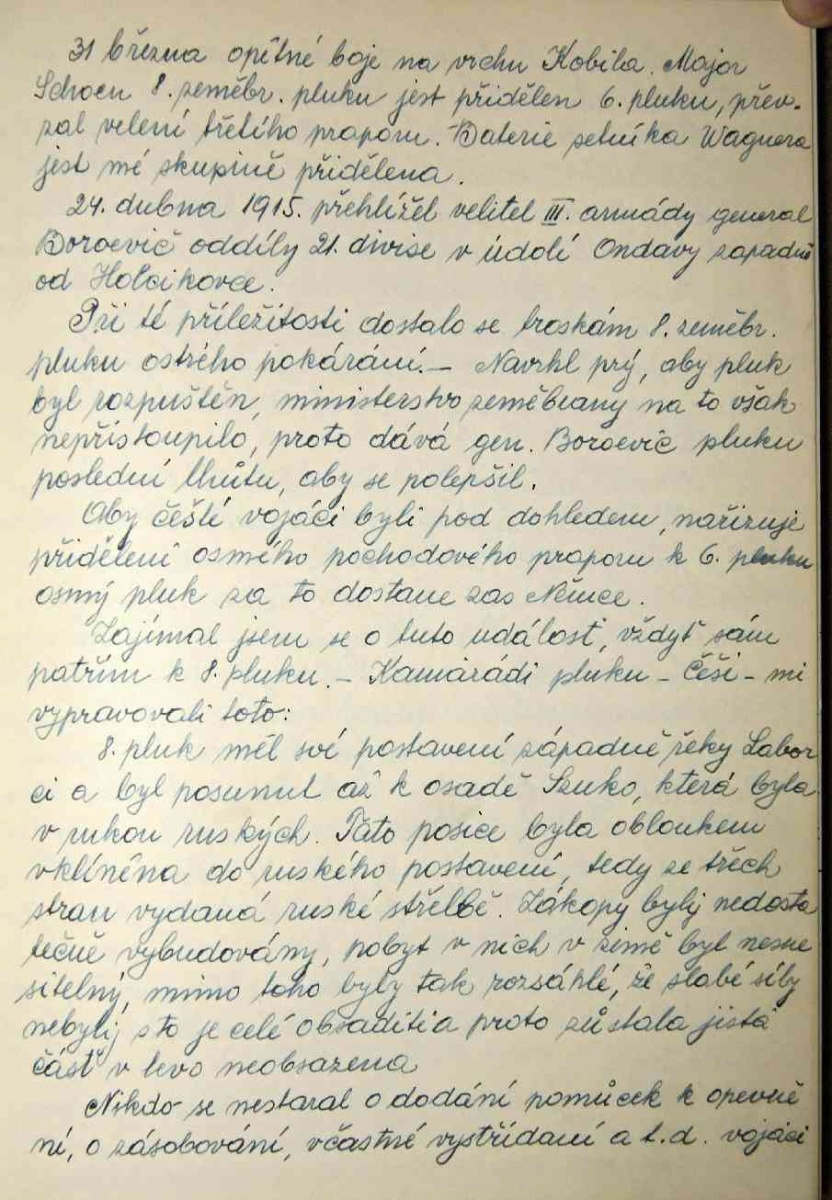 31 března opětné boje na vrchu Kobila. Major
Schoen 8. zeměbr. pluku jest přidělen 6. pluku, přev-
zal velení třetího praporu. Baterie setníka Wagnera
jest mé skupině přidělena.
24. dubna 1915. přehlížel velitel III. armády general
Boroevič oddíly 21. divise v údolí Ondavy západně
od Holcikovce.
Při té příležitosti dostalo se troskám 8. zeměbr.
pluku ostrého pokárání. – Navrhl prý, aby pluk
byl rozpuštěn, ministerstvo zeměbrany na to však
nepřistoupilo, proto dává gen. Boroevič pluku
poslední lhůtu, aby se polepšil.
Aby čeští vojáci byli pod dohledem, nařizuje
přidělení osmého pochodového praporu k 6. pluku
osmý pluk za to dostane zas Němce.
Zajímal jsem se o tuto událost, vždyť sám
patřím k 8. pluku. – Kamarádi pluku – Češi – mi
vypravovali toto:
8. pluk měl své postavení západně řeky Labor
ci a byl posunut až k osadě Szuko, která byla
v rukou ruských. Tato posice byla obloukem
vklíněna do ruského postavení, tedy ze třech
stran vydaná ruské střelbě. Zákopy byly nedosta
tečně vybudovány, pobyt v nich v zimě byl nesne
sitelný, mimo toho byly tak rozsáhlé, že slabé síly
nebyly sto je celé obsaditi a proto zůstala jistá
část v levo neobsazena
Nikdo se nestaral o dodání pomůcek k opevně
ní, o zásobování, včastné vystřídaní a t.d. vojáci